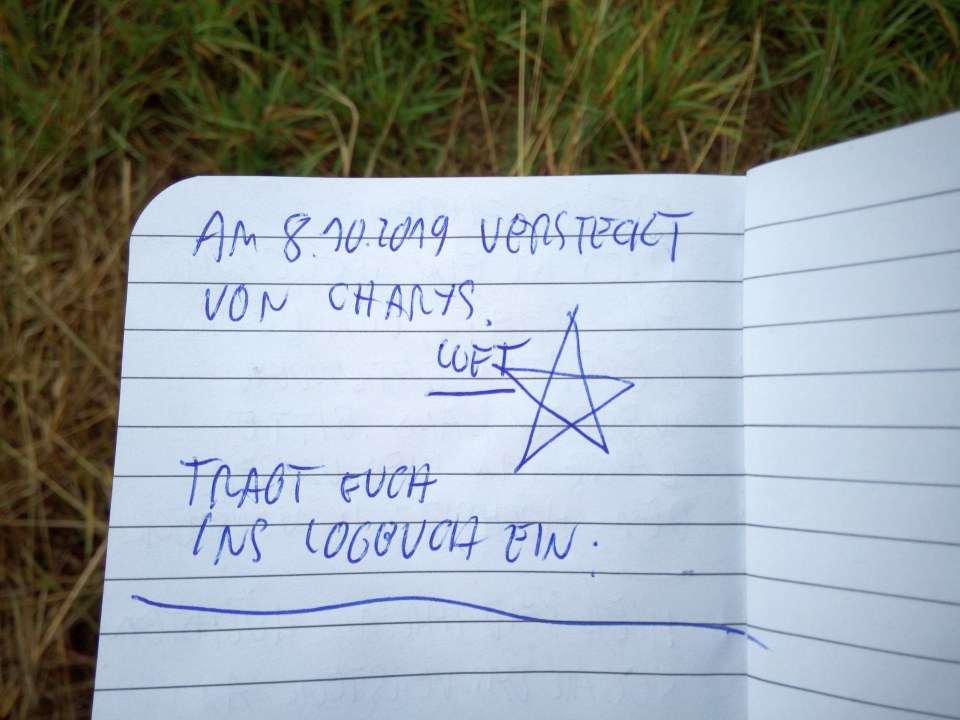 AM 8.10.2019 VERSTECKT
VON CHARYS.
TRAGT EUCH
INS LOGBUCH EIN.